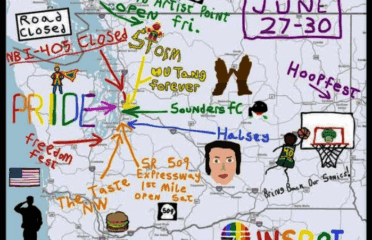 Road
Closed
To Artist Point
OPEN fri.
JUNE
27-30
NB I-405 Closed
STORM
WU TANG
forever
Hoopfest
PRIDE
Sounders FC
Halsey
Freedom
Fest
SR 509
Expressway
1st Mile
open Sat.
The Taste
NW
Bring Back Our Sonics!
WSDOT